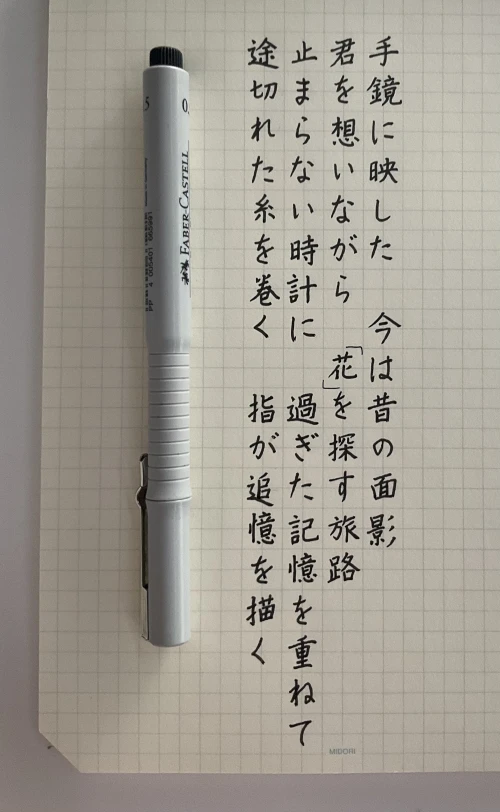 手鏡に映した　今は昔の面影
君を想いながら　「花」を探す旅路
止まらない時計に　過ぎた記憶を重ねて
途切れた糸を巻く　指が追憶を描く
FABER-CASTELL
MIDORI